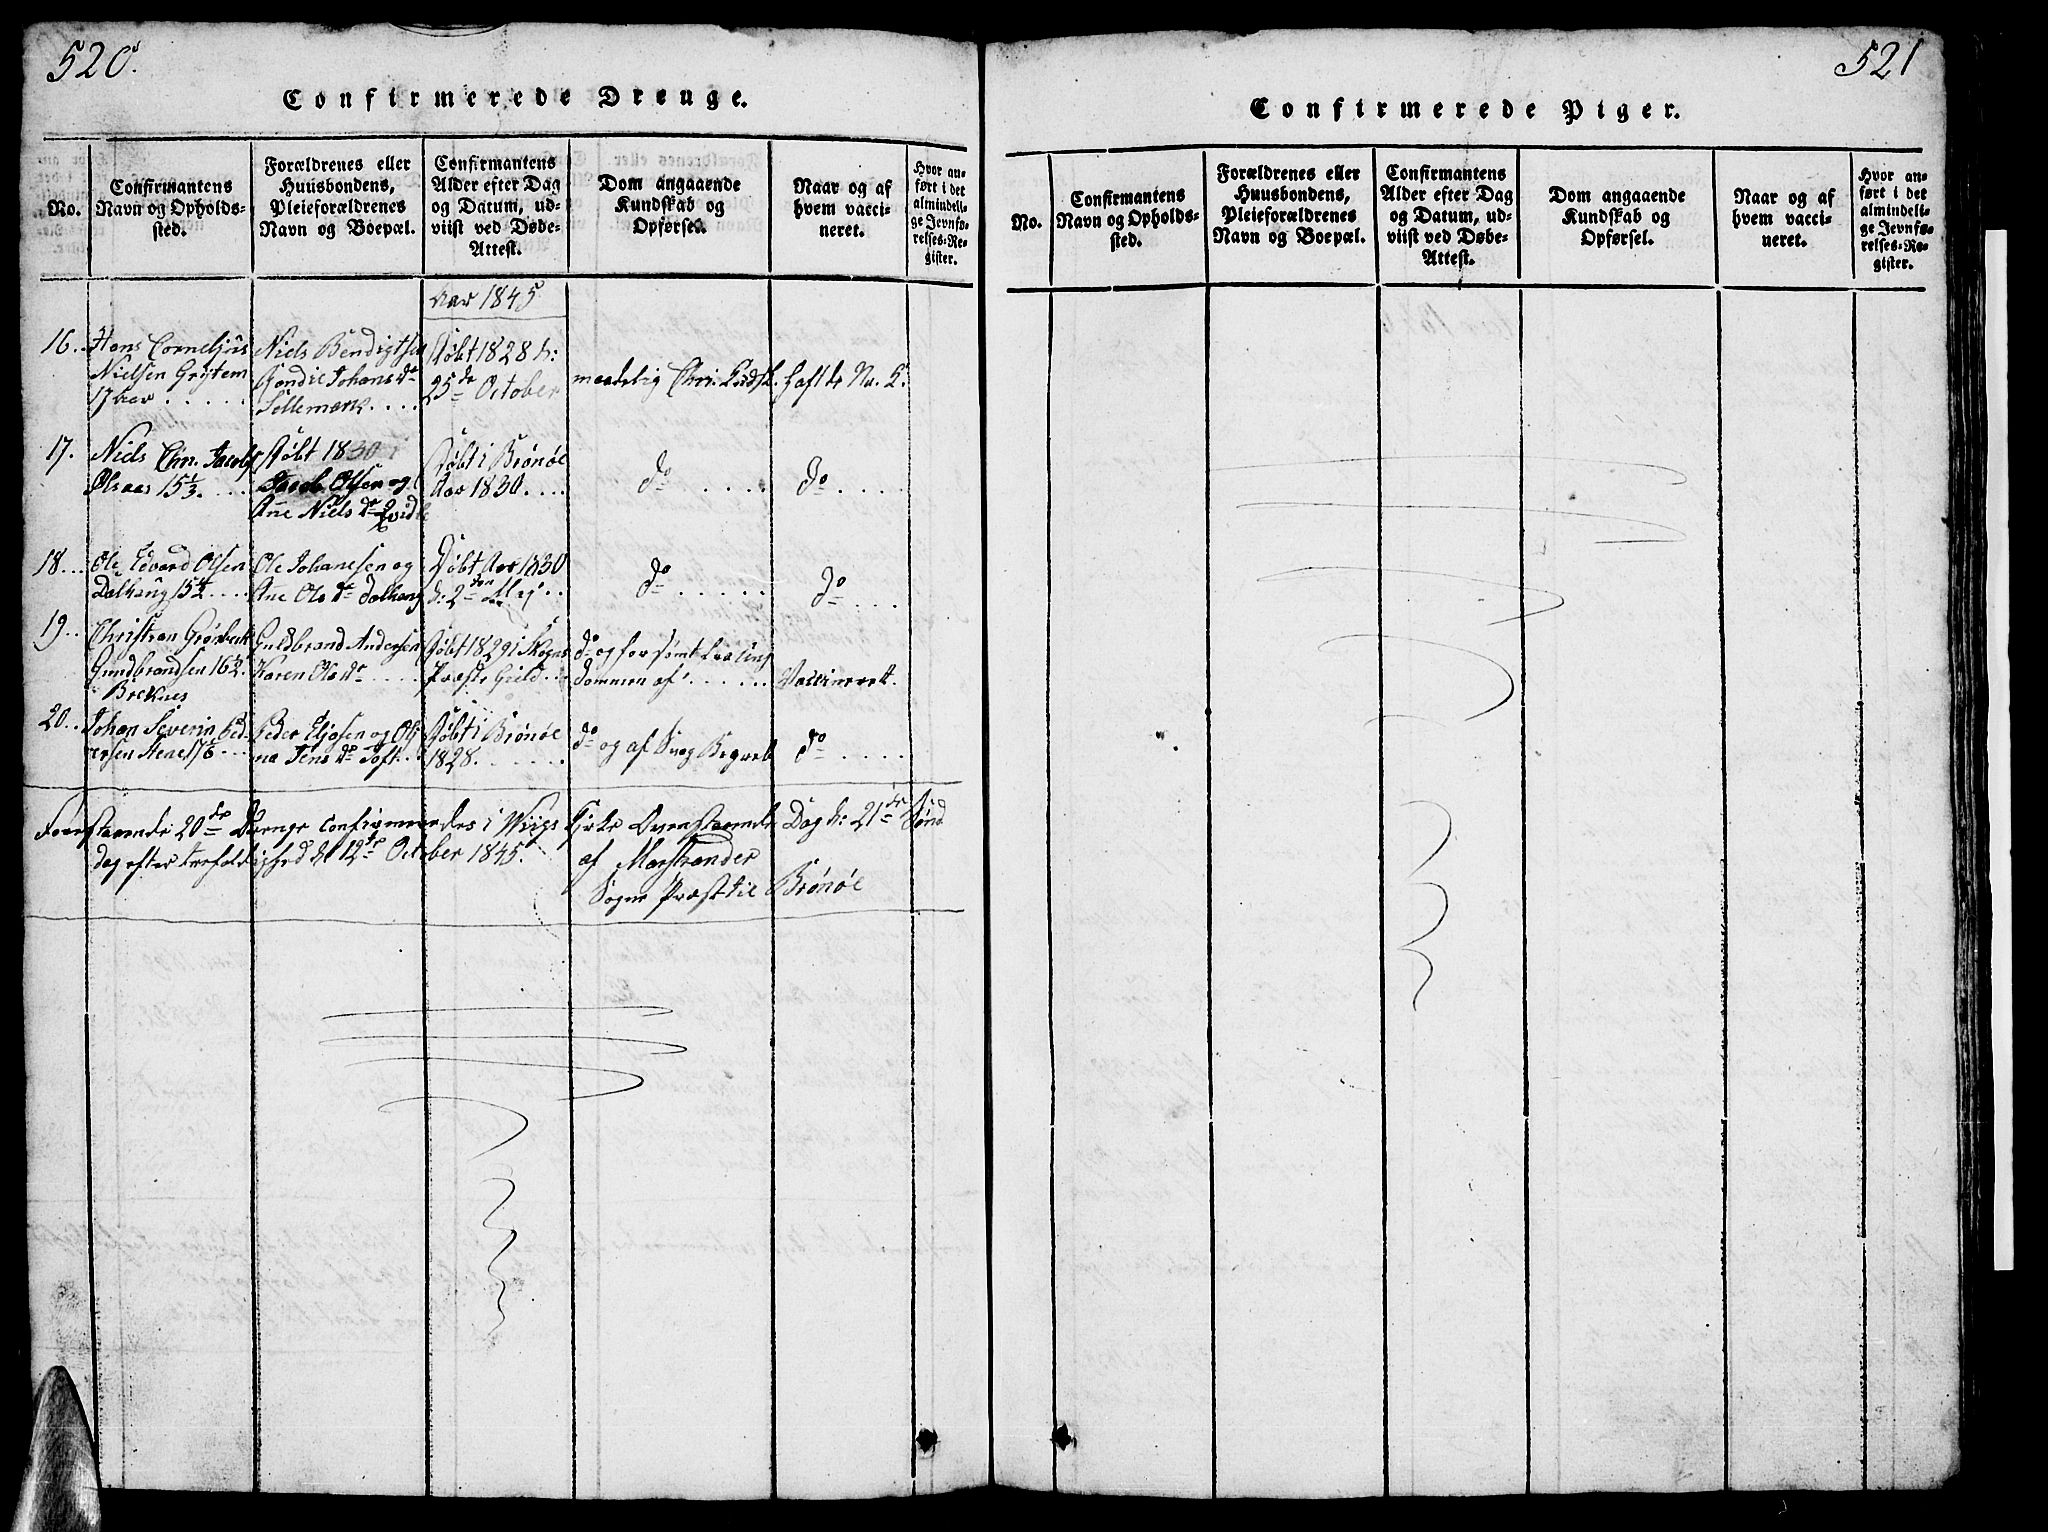 520.
Confirmerede Drenge.
No.
Confirmantens
Navn og Opholds-
sted.
Forældrenes eller
Huusbondens,
Pleieforældrenes
Navn og Boepæl.
Confirmantens
Alder efter Dag
og Datum, ud-
viist ved Døbe-
Attest.
Dom angaaende
Kundskab og
Opførsel.
Naar og af
hvem vacci-
neret.
Hvor an-
ført i det
almindeli-
ge Jevnfø-
relses-Re-
gister.
Aar 1845
16..
Hans Corneljus
Nielsen Grytem
17 aar . . . . .
Niels Bendigtsen
Johans dr
. . . .
Døbt 1828 d:
25de October
maadelig Chri. Kudsk.
17.
Niels Chr. Jacobs
Ølsaas 15 1/3. . . . .
Døbt 1830 i
Jacob Olsen og
Ane Niels dr
Døbt i Brönöe
Aar 1830. . . .
do . . . . .
Do . . . .
18...
Ole Edvard Olsen
Dalhaug 15 1/2 . . . .
Ole Johanesen og
Ane Ols dr Dalhaug
Døbt Aar 1830
d: 2den Maj . .
do . . . . . .
do . . .
19..
Christian Grönbeck
Gundbrandsen 16 1/2.
Breknes
Guldbrand Andersen
Karen Ols dr . . . .
Døbt 1829 i
Præste Gield . . .
do og forsömt
Dommen af . . . . . .
Vaccineret.
20...
Johan Severin Ped-
ersen Stene 17 1/6 . . .
Peder Eljasen og Oli
na Jens dr Toft . .
Døbt i Brönöe
1828. . . . . . .
do og af Svag Begreb
do . . . .
Foerstaaende 20de Drenge Confirmeredes i Wiigs Kjirke Ovenstaaende Dag d: 21de Sönd
dag efter Trefoldighed d. 12te October 1845. af Marstrander
Sogne Præst til Brönöe
521
Confirmerede Piger.
No.
Confirmantens
Navn og Opholds-
sted.
Forældrenes eller
Huusbondens,
Pleieforældrenes
Navn og Boepæl.
Confirmantens
Alder efter Dag
og Datum, ud-
viist ved Døbe-
Attest.
Dom angaaende
Kundskab og
Opførsel.
Naar og af
hvem vacci-
neret.
Hvor an-
ført i det
almindeli-
ge Jevnfø-
relses-Re-
gister.